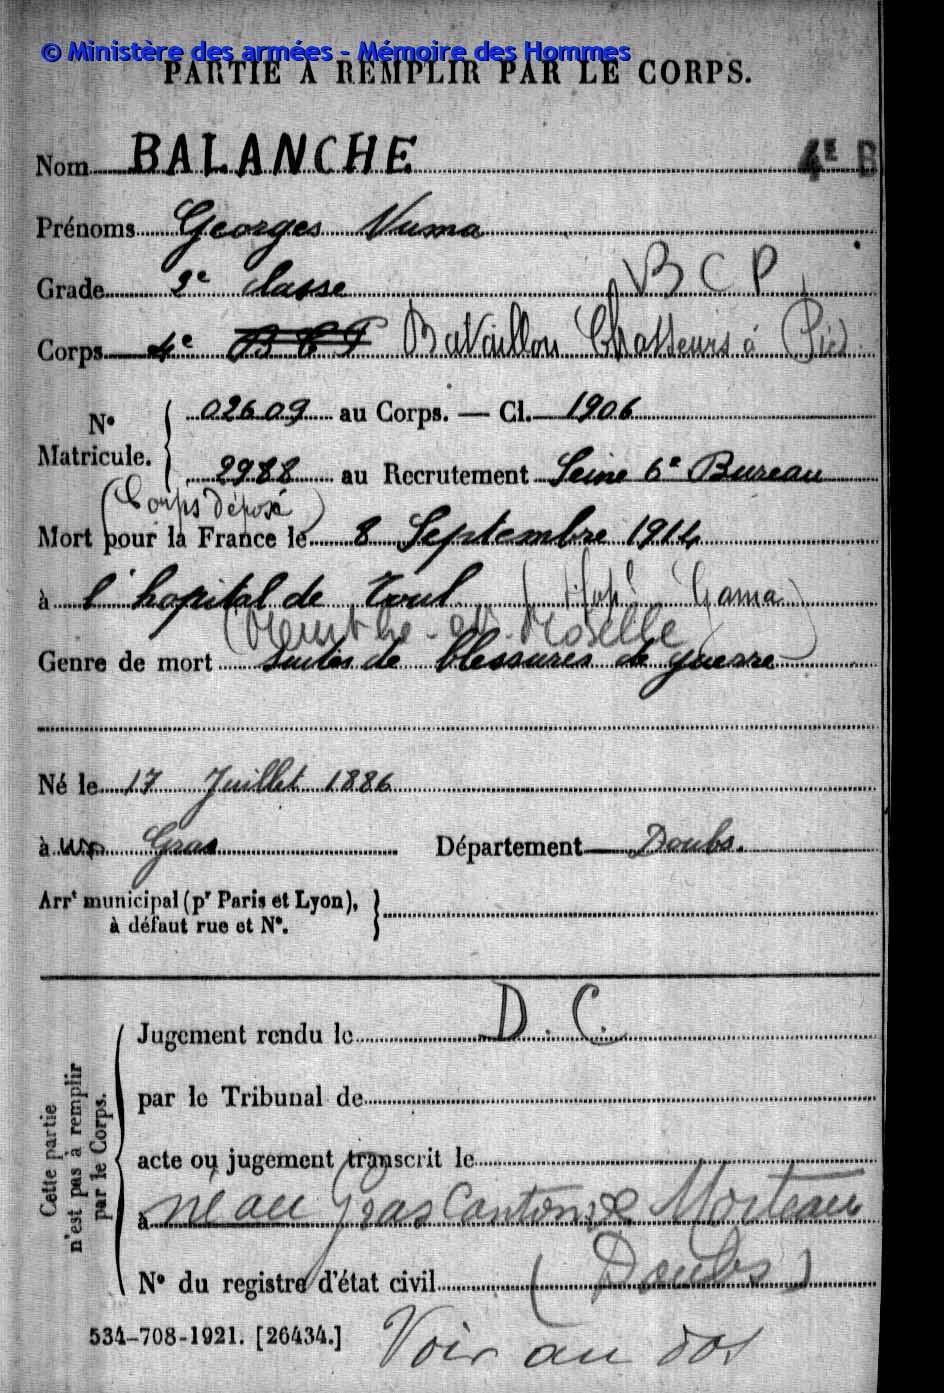 © Ministère des armées - Mémoire des Hommes
PARTIE À REMPLIR PAR LE CORPS.
Nom BALANCHE 4E B
Prénoms Georges Numa
Grade 2e classe B C P
Corps 4e B C P Bataillon Chasseurs à Pied
No Matricule. 02609 au Corps. — Cl. 1906
2988 au Recrutement Seine 6e Bureau
(Corps déposé)
Mort pour la France le 8 Septembre 1914
à l'hopital de Toul (Hop. Gama)
(Meurthe-et-Moselle)
Genre de mort suites de blessures de guerre
Né le 17 Juillet 1886
à Gras Département Doubs.
Arrt municipal (pr Paris et Lyon),
à défaut rue et No.
Cette partie
n'est pas à remplir
par le Corps.
Jugement rendu le D. C.
par le Tribunal de
acte ou jugement transcrit le
à né au Gras Canton de Morteau
No du registre d'état civil (Doubs)
534-708-1921. [26434.] Voir au dos